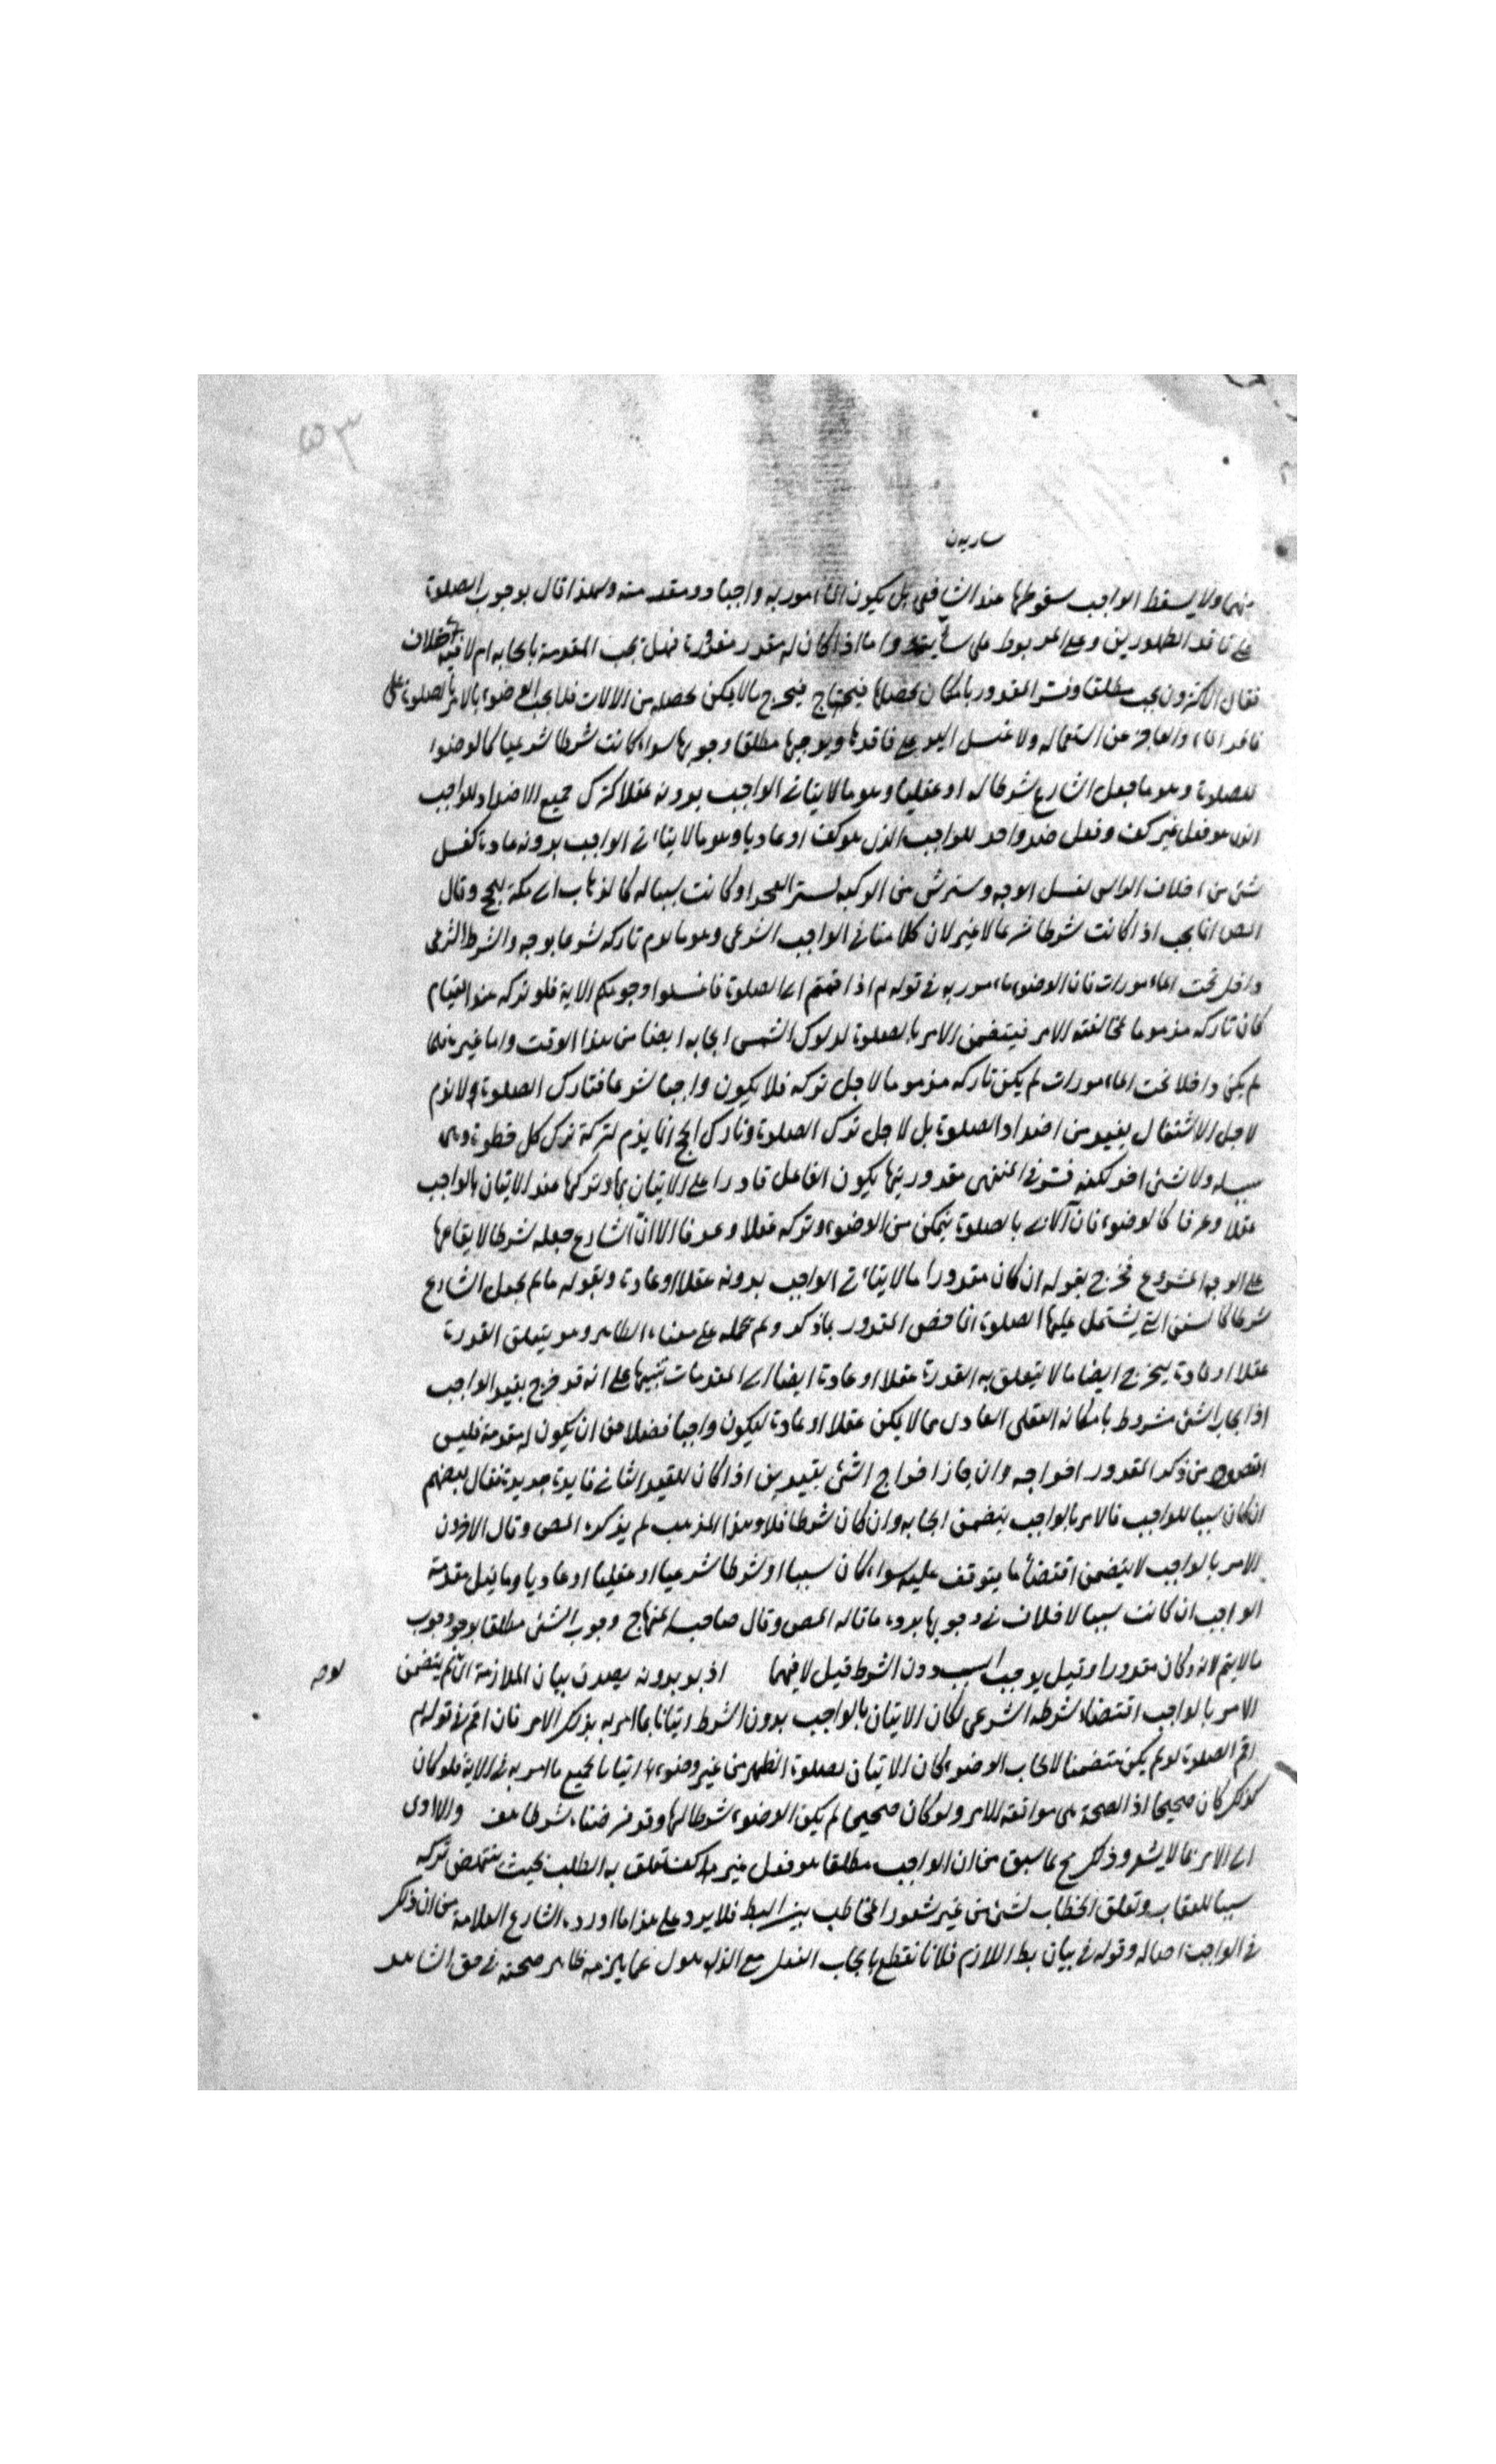 ٥٣
منهما ولا يسقط الواجب سقوطها عند الشافعي بل يكون المأمور به واجبا ومقدمته ولهذا قال بوجوب الصلوة
على فاقد الطهورين وعلى المربوط على واما اذا كان له مقدور فهل تجب المقدمة بايجابه ام لا فيه خلاف
فقال الاكثرون يجب مطلقا وفسر المقدور بامكان تحصلها فيخرج مالا يمكن تحصله من الالات فلا يجب الوضوء بالامر بالصلوة على
فاقد الماء والعاجز عن استعماله ولا غسل اليد على فاقدها ويوجبها مطلقا وجوبها سواء كانت شرطا شرعيا كالوضوء
للصلوة وهو ما جعل الشارع شرطا له او عقليا وهو مالا يتاتى الواجب بدونه عقلا كترك جميع الاضداد للواجب
الذى هو فعل غير كف وفعل ضد واحد للواجب الذى هو كف او عاديا وهو مالا يتاتى الواجب بدونه عادة كغسل
شئ من الراس لغسل الوجه وستر شئ من الركبة لستر الفخذ او كانت سببا له كالذهاب الى مكة للحج وقال
المص انما يجب اذا كانت شرطا شرعا لا غير لان كلامنا فى الواجب الشرعى وهو ما يذم تاركه شرعا بوجه والشرط الشرعى
داخل تحت المأمورات فان الوضوء مأمور به فى قوله اذا قمتم الى الصلوة فاغسلوا وجوهكم الاية فلو تركه عند القيام
كان تاركه مذموما لمخالفته الامر فيتضمن الامر بالصلوة لدلوك الشمس ايجابه ايضا من هذا الوقت واما غيره فلما
لم يكن داخلا تحت المأمورات لم يكن تاركه مذموما لاجل تركه فلا يكون واجبا شرعا فتارك الصلوة لا يذم
لاجل الاشتغال بضد من اضداد الصلوة بل لاجل ترك الصلوة وتارك الحج انما يذم لتركه لا لترك كل خطوة
سبيله ولا شئ اخر لكنه فسر فى المنتهى مقدوريتها بكون الفاعل قادرا على الاتيان بها وتركها عند الاتيان بالواجب
عقلا وعرفا كالوضوء فان الاتى بالصلوة يتمكن من الوضوء وتركه عقلا وعرفا الا ان الشارع جعله شرطا لايقاعها
على الوجه المشروع فخرج بقوله ان كان مقدورا مالا يتاتى الواجب بدونه عقلا او عادة وبقوله مالم يجعل الشارع
شرطا كالسنن التى يشتمل عليها الصلوة انما خص المقدور بما ذكر ولم يحمله على معناه الظاهر وهو يتعلق القدرة
عقلا او عادة ليخرج ايضا مالا يتعلق به القدرة عقلا او عادة ايضا الى المقدمات تنبيها على انه قد خرج بقيد الواجب
اذ ايجاب الشئ مشروط بامكانه العقلى العادى فمالا يمكن عقلا او عادة لا يكون واجبا فضلا من ان يكون له مقدمة فليس
المقصود من ذكر المقدور اخراجه وان جاز اخراج الشئ بقيدين اذا كان للقيد الثانى فايدة جديدة فقال بعضهم
ان كان سببا للواجب فالامر بالواجب يتضمن ايجابه وان كان شرطا فلا وهذا المذهب لم يذكره المص وقال الاخرون
الامر بالواجب لا يتضمن اقتضاء ما يتوقف عليه سواء كان سببا او شرطا شرعيا او عقليا او عاديا وما قيل مقدمة
الواجب ان كانت سببا لا خلاف فى وجوبها يرده ما قاله المص وقال صاحب المنهاج وجوب الشئ مطلقا يوجب وجوب
مالا يتم الا به وكان مقدورا وقيل يوجب السبب دون الشرط وقيل لا فيهما اذ بدونه يصدق بيان الملازمة ان لم يتضمن
الامر بالواجب اقتضاء شرطه الشرعى لكان الاتيان بالواجب بدون الشرط اتيانا بما امر به بذلك الامر فان اقم فى قوله
اقم الصلوة لو لم يكن متضمنا لايجاب الوضوء لكان الاتيان بصلوة الظهر من غير وضوء اتيانا بجميع ما امر به فى الاية فلو كان
كذلك كان صحيحا اذ الصحة هى موافقة الامر ولو كان صحيحا لم يكن الوضوء شرطا لها وقد فرضناه شرطا هف والاولى
اى الامر بما لا يشعر وذلك مح لما سبق من ان الواجب مطلقا هو فعل غير كف تعلق به الطلب بحيث ينتهض تركه
سببا للعقاب وتعلق الخطاب لشئ من غير شعور المخاطب بين البط فلا يرد على هذا ما اورده الشارح العلامة من ان ذلك
فى الواجب اصالة وقوله فى بيان بط اللازم فلانا نقطع بايجاب الفعل مع الذهول عما يلزمه ظاهر صحته فى حق الشاهد